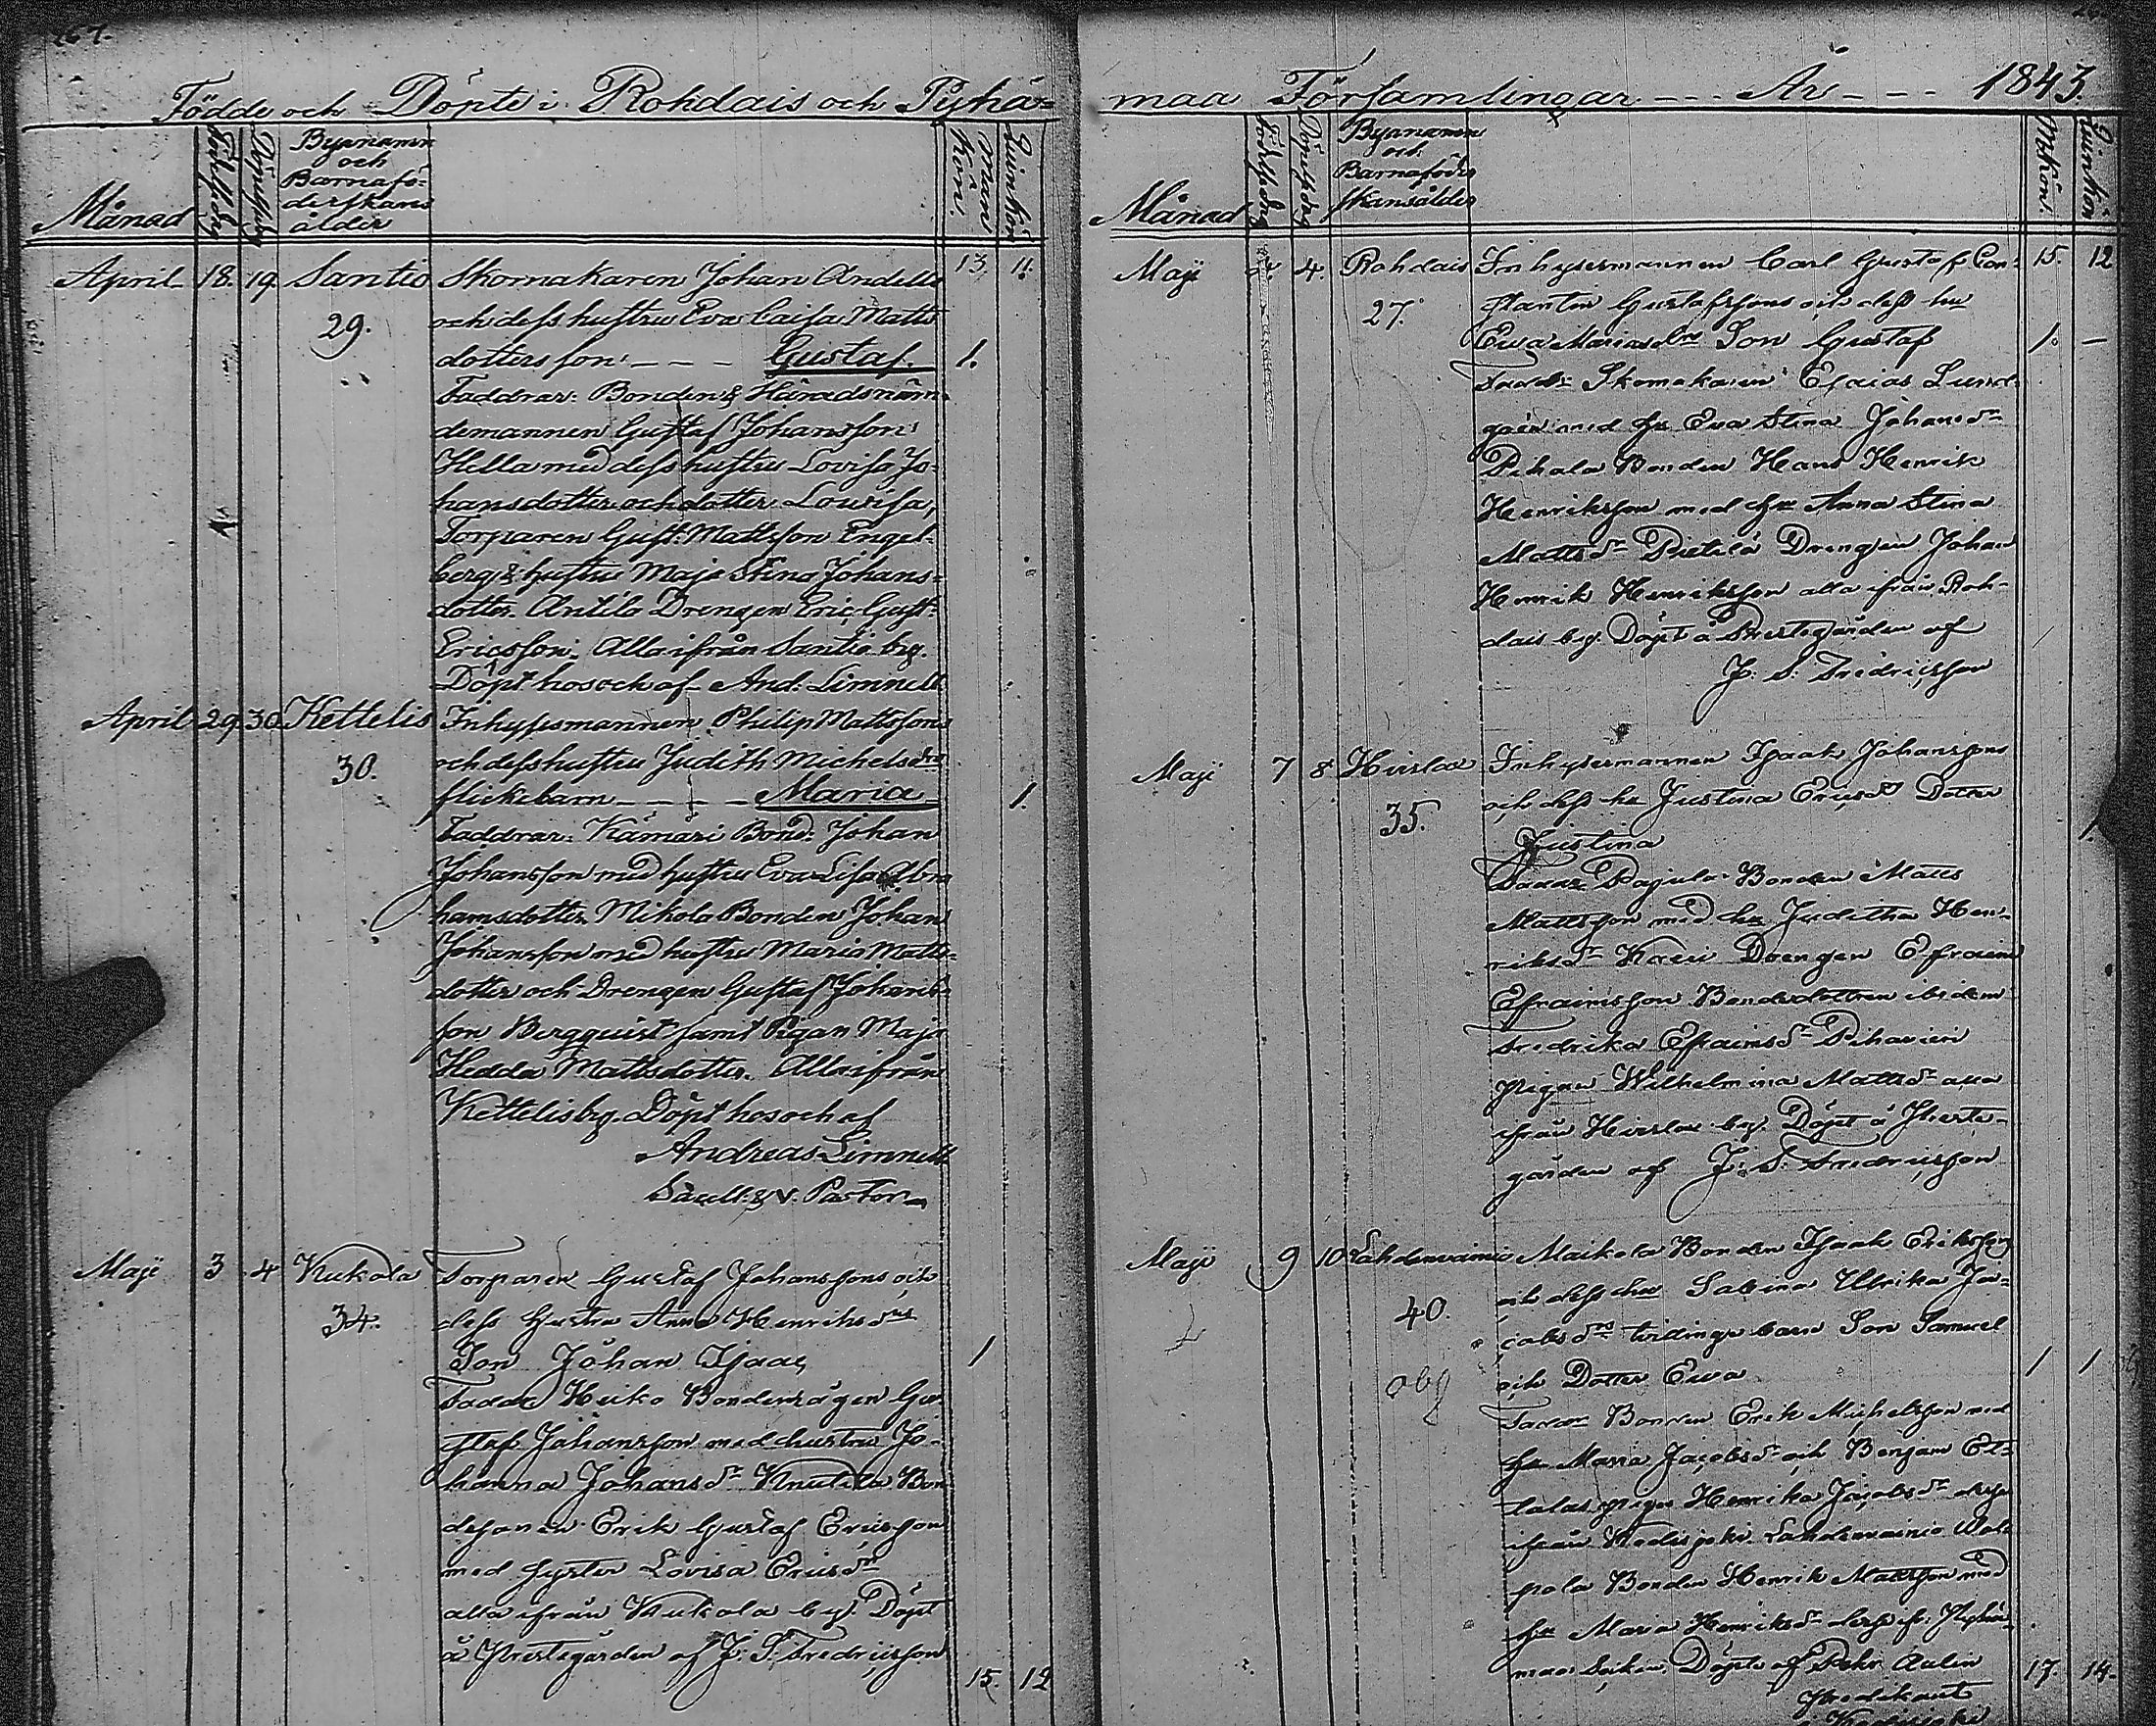 267.
Födde och Döpte i Rohdais och Pyhä=
Månad
Födelsedag
Döpelsedag
Byanamn
och
Barnafö=
derskans
ålder
Man
Kön.
Quinkön
13. 11.
April 18. 19. Santio Skomakaren Johan Andells
29. och dess hustru Eva Caisa Matts
dotters son: — — — Gustaf. 1.
Faddrar: Bonden & Häradsnäm=
demannen Gustaf Johansson
Hella med dess hustru Lovisa Jo=
hansdotter och dotter Lowisa,
Torparen Gust: Mattsson Engel=
berg & hustru Maja Stina Johans=
dotter. Antila Drengen Eric Gust:
Ericsson. Alla ifrån Santio by.
Döpt hos och af And: Limnell
April 29. 30. Kettelis Inhysesmannen Philip Mattssons
30. och dess hustru Judith Michelsdrs
flickebarn — — — — Maria 1.
Faddrar: Kämäri Bond: Johan
Johansson med hustru Eva Lisa Abra
hamsdotter Mikola Bonden Johan
Johansson med hustru Maria Matts=
dotter och Drengen Gustaf Johans=
son Bergquist samt Pigan Maja
Hedda Mattsdotter. Alla ifrån
Kettelis by. Döpt hos och af
Andreas Limnell
Sacell: & V. Pastor
Maji 3 4 Kukola Torparen Gustaf Johanssons och
34. dess hustru Anna Henriksdrs
Son Johan Isaac 1
Faddr Heiko Bondemågen Gu=
staf Johansson med hustru Jo=
hanna Johansdr Knutila Bon
desonen Erik Gustaf Ericsson
med syster Lovisa Ericsdr
alla ifrån Kukola by. Döpt
å Prestegården af J. S. Fredricsson
15. 12
maa Församlingar — — — År — — — 1843.
Månad
Födelsedag
Döpelsedag
Byanamn
och
Barnaföder
skansålder
M:kön.
Quinkön
15. 12
Maji 4. Rohdais Inhysesmannen Carl Gustaf Con=
27. stantin Gustafssons och dess hu
Ewa Mariasdrs Son Gustaf 1. —
Faddr Skomakaren Esaias Lund=
gren med hu Ewa Stina Johansdr
Pihala Bonden Hans Henrik
Henriksson med hu Anna Stina
Mattsdr Pietilä Drengen Johan
Henrik Henriksson alla ifrån Roh=
dais by. Döpt å Prestegården af
J. S. Fredricsson
Maji 7 8 Hirslax Inhysesmannen Isaak Johanssons
35. och dess hu Justina Ericsdrs Dotter
Justina 1.
Faddr Pajula Bonden Matts
Mattsson med hu Juditha Hen=
riksdr Drengen Efraim
Efraimsson Bondedottren ibidem
Fredrika Efraimsdr
pigan Wilhelmina Mattsdr alla
ifrån Hirslax by. Döpt å Preste=
gården af J. S. Fredricsson
Maji 9 10 Lahdenvainio Maikola Bonden Isaak Erikssons
40. och dess hu Sabina Ulrika Ja=
cobsdrs tvillinge barn Son Samuel
obs och Dotter Ewa 1 1
Faddr Bonden Erik Michelsson med
hu Maria Jacobsdr och Benjam
pigan Henrika Jacobsdr
ifrån Kodisjoki Lahdenvainio
pola Bonden Henrik Mattsson med
hu Maria Henriksdr Pyhä=
maa Socken Döpte af Petr. Aalin
Predikant
17. 14.